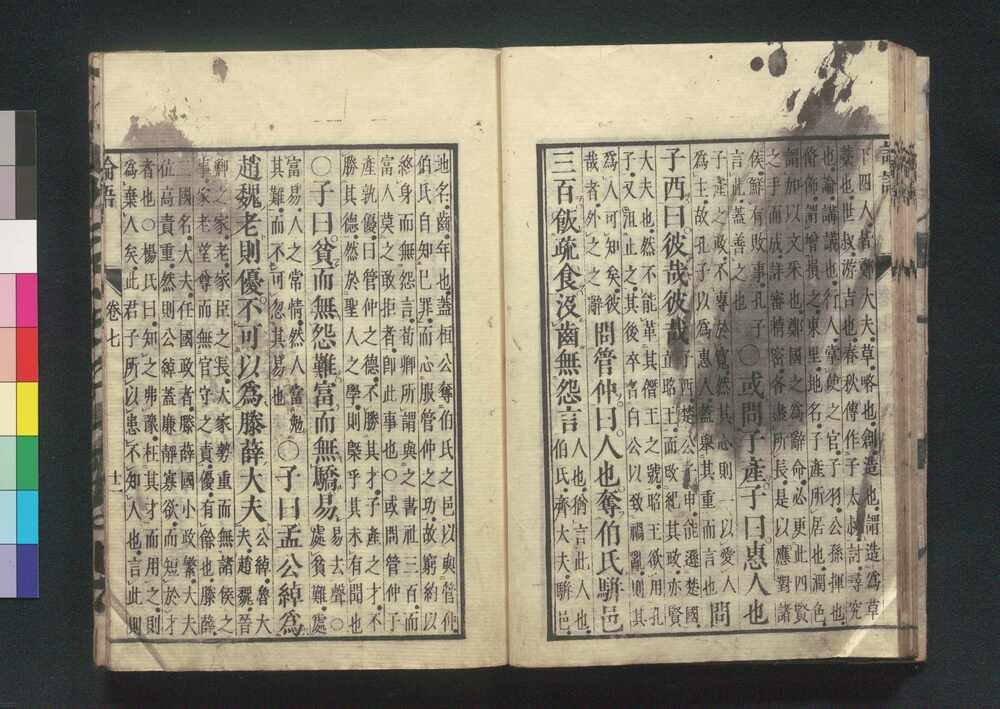 論語
下四人皆鄭大夫草略也創造也謂造爲草
藁也世叔游吉也春秋傳作子太叔討尋究
也論講議也行人掌使之官子羽公孫揮也
脩飾謂增損之東里地名子產所居也潤色
謂加以文采也鄭國之爲辭命必更此四賢
之手而成詳審精密各盡所長是以應對諸
侯鮮有敗事孔子
言此蓋善之也
○或問子產子曰惠人也
子產之政不專於寬然其心則一以愛人
爲主故孔子以爲惠人蓋舉其重而言也
問
子西曰彼哉彼哉
子西楚公子申能遜楚國
立昭王而改紀其政亦賢
大夫也然不能革其僭王之號昭王欲用孔
子又沮止之其後卒召白公以致禍亂則其
爲人可知矣彼
哉者外之之辭
問管仲曰人也奪伯氏駢邑
三百飯疏食沒齒無怨言
人也猶言此人也
伯氏齊大夫駢邑
地名齒年也蓋桓公奪伯氏之邑以與管仲
伯氏自知己罪而心服管仲之功故窮約以
終身而無怨言荀卿所謂與之書社三百而
富人莫之敢拒者卽此事也○或問管仲子
產孰優曰管仲之德不勝其才子產之才不
勝其德然於聖人之學則槩乎其未有聞也
○子曰貧而無怨難富而無驕易
易去聲○
處貧難處
富易人之常情然人當勉
其難而不可忽其易也
○子曰孟公綽爲
趙魏老則優不可以爲滕薛大夫
公綽魯大
夫趙魏晉
卿之家老家臣之長大家勢重而無諸侯之
事家老望尊而無官守之責優有餘也滕薛
二國名大夫任國政者滕薛國小政繁大夫
位高責重然則公綽蓋廉靜寡欲而短於才
者也○楊氏曰知之弗豫枉其才而用之則
爲棄人矣此君子所以患不知人也言此則
論語
卷七
十一